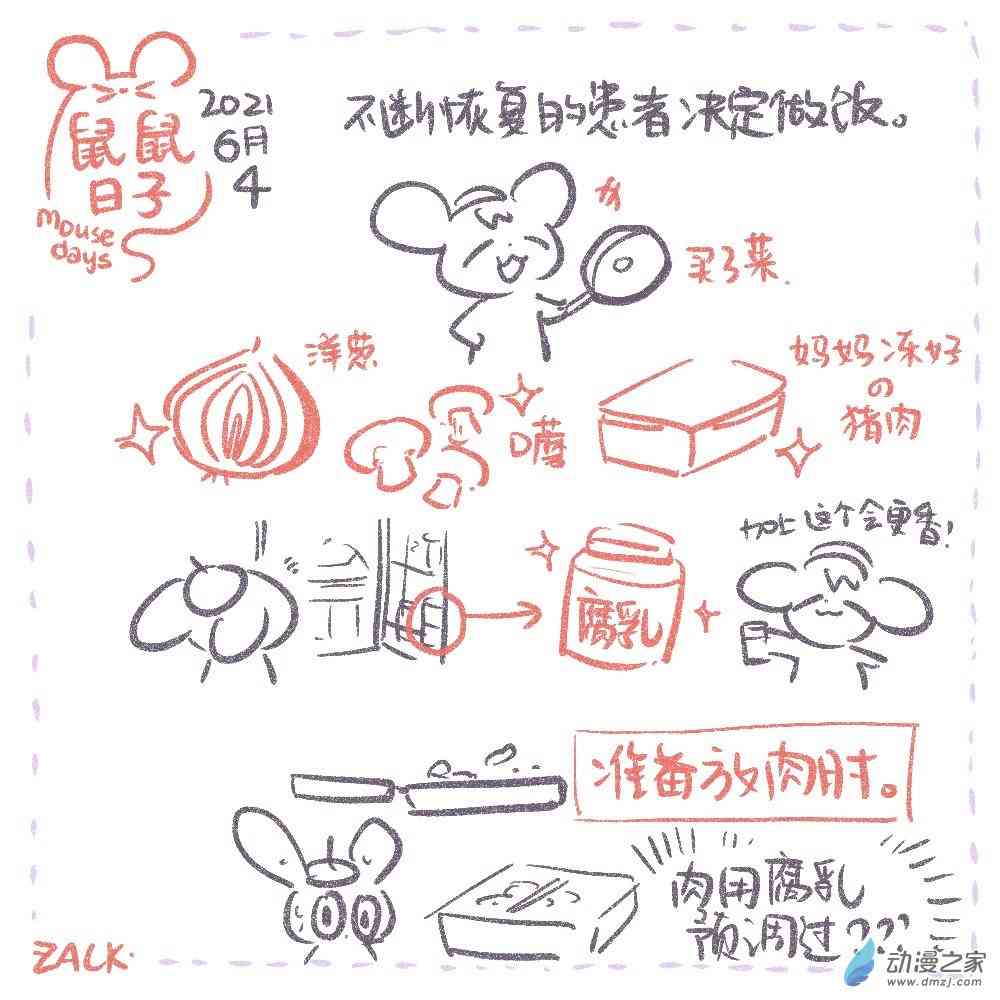 鼠鼠
日子
mouse
days
2021
6月
4
不断恢复的患者决定做饭。
买了菜.
洋葱
口蘑
妈妈冻好
の
猪肉
加上这个会更香!
腐乳
准备放肉时。
肉用腐乳
预调过???
ZALK.
动漫之家
www.dmzj.com